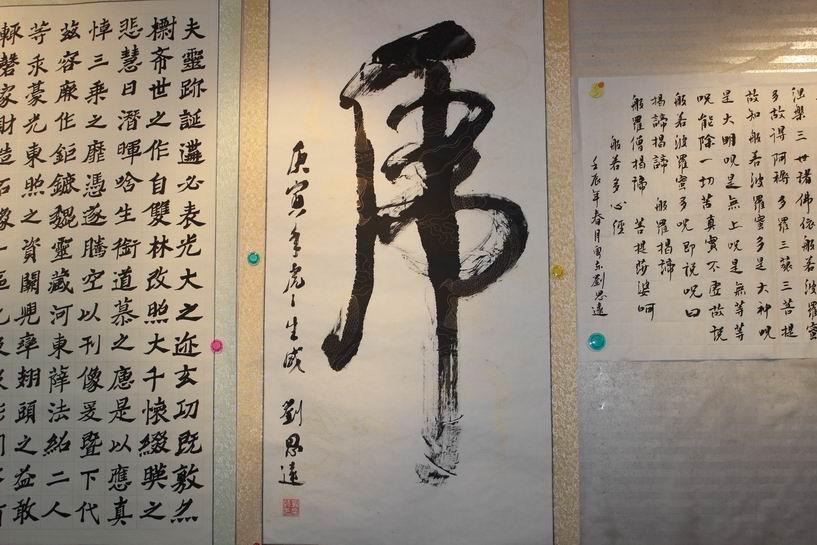 夫靈跡誕遘必表光大之迹玄功既敷亦
㯹希世之作自雙林改照大千懷綴暎之
悲慧日潛暉唅生銜道慕之慟是以應真
悼三乘之靡憑遂騰空以刊像爰暨下代
茲容厥作鉅鏕魏靈藏河東薛法紹二人
等求豪光東照之資闕兜率翅頭之益敢
輒磬家財造石像一區
虎
庚寅年虎〻生威 劉思遠
涅槃三世諸佛依般若波羅蜜
多故得阿耨多羅三藐三菩提
故知般若波羅蜜多是大神呪
是大明呪是無上呪是無等等
呪能除一切苦真實不虛故說
般若波羅蜜多呪即說呪曰
揭諦揭諦 般羅揭諦
般羅僧揭諦 菩提莎婆呵
般若多心經
壬辰年春月 劉思遠